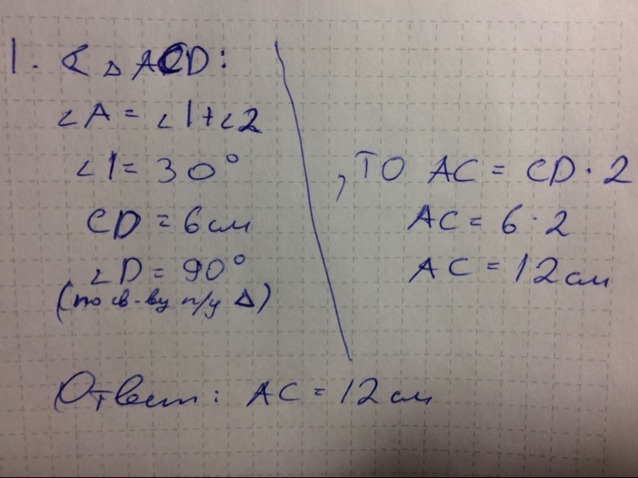 1. Δ ACD:
∠A = ∠1+∠2
∠1 = 30°
CD = 6 см
∠D = 90°
(по св-ву п/у Δ)
, то AC = CD · 2
AC = 6 · 2
AC = 12 см
Ответ: AC = 12 см